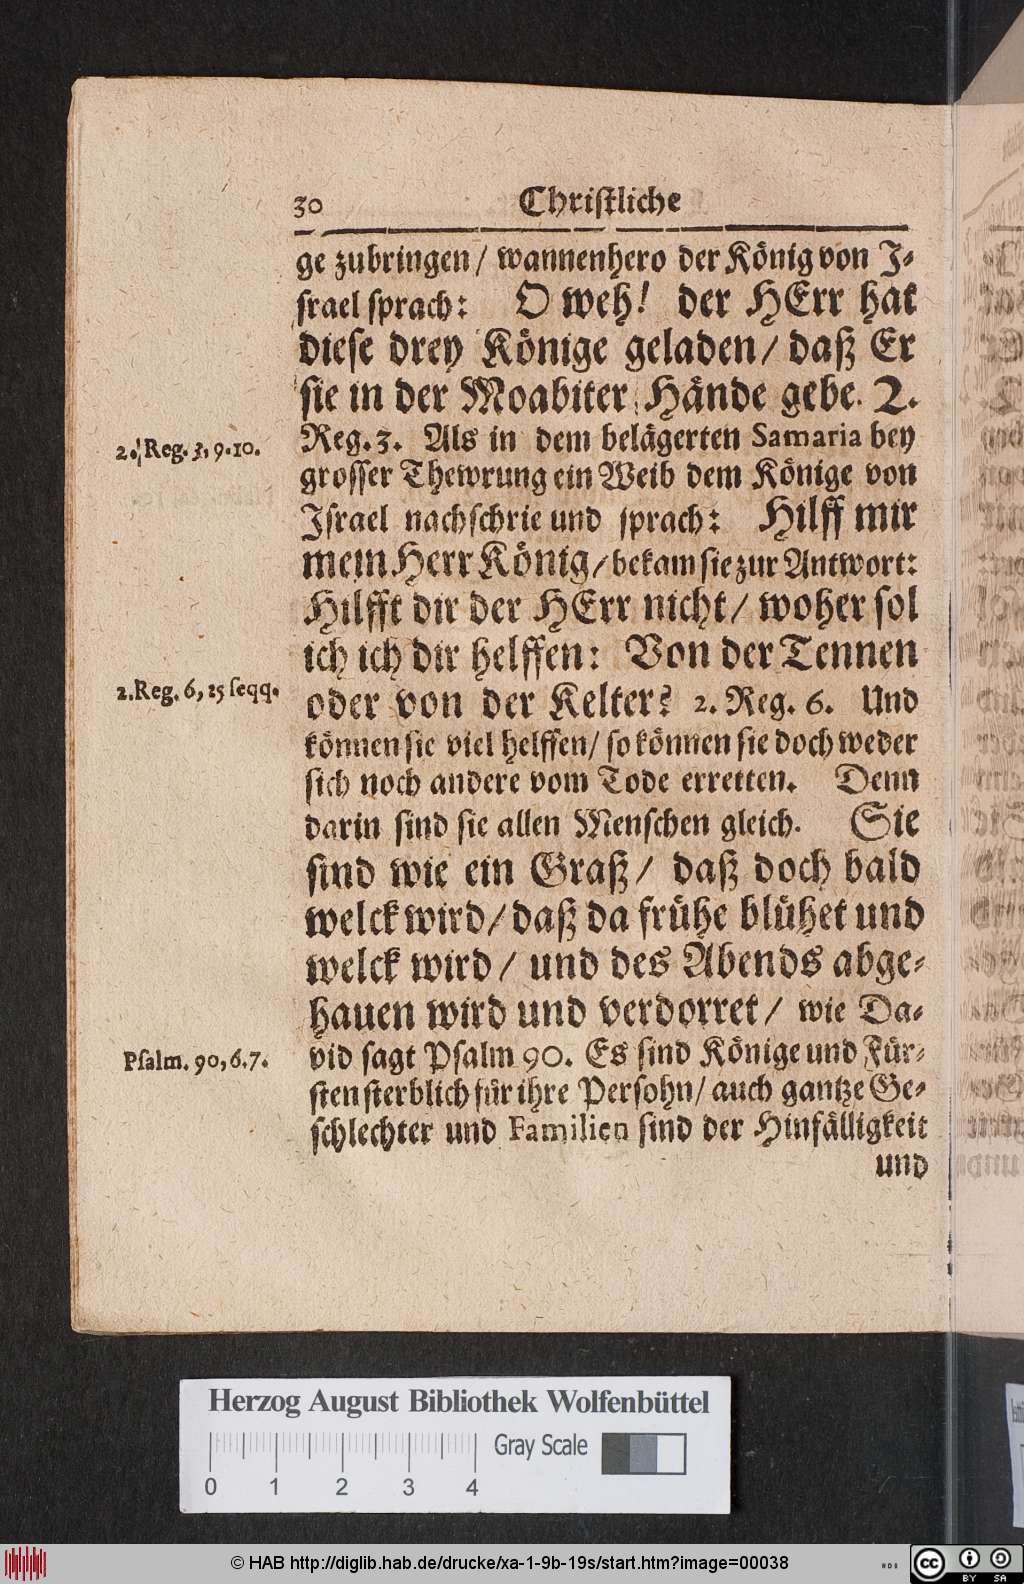 30 Christliche
ge zubringen / wannenhero der König von J⸗
srael sprach: O weh! der HErr hat
diese drey Könige geladen / daß Er
sie in der Moabiter Hände gebe. 2.
2. Reg. 3, 9. 10.
Reg. 3. Als in dem belägerten Samaria bey
grosser Thewrung ein Weib dem Könige von
Jsrael nachschrie und sprach: Hilff mir
mein Herr König / bekam sie zur Antwort:
Hilfft dir der HErr nicht / woher sol
ich ich dir helffen: Von der Tennen
2. Reg. 6, 25 seqq.
oder von der Kelter? 2. Reg. 6. Und
können sie viel helffen / so können sie doch weder
sich noch andere vom Tode erretten. Denn
darin sind sie allen Menschen gleich. Sie
sind wie ein Graß / daß doch bald
welck wird / daß da frühe blühet und
welck wird / und des Abends abge⸗
hauen wird und verdorret / wie Da⸗
Psalm. 90, 6. 7.
vid sagt Psalm 90. Es sind Könige und Für⸗
sten sterblich für ihre Persohn / auch gantze Ge⸗
schlechter und Familien sind der Hinfälligkeit
und
Herzog August Bibliothek Wolfenbüttel
Gray Scale
0 1 2 3 4
© HAB http://diglib.hab.de/drucke/xa-1-9b-19s/start.htm?image=00038
cc BY SA